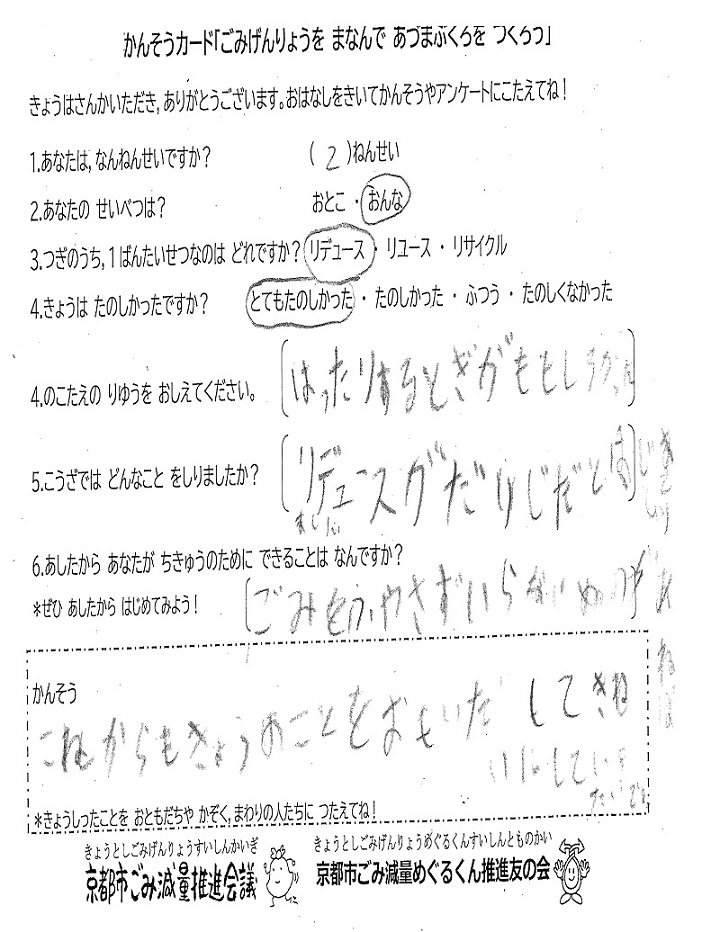 かんそうカード「ごみげんりょうを まなんで あづまぶくろを つくろう」
きょうはさんかいただき,ありがとうございます。おはなしをきいてかんそうやアンケートにこたえてね!
1.あなたは,なんねんせいですか? (2)ねんせい
2.あなたの せいべつは? おとこ・おんな
3.つぎのうち,1ばんたいせつなのは どれですか?リデュース・リユース・リサイクル
4.きょうは たのしかったですか? とてもたのしかった・たのしかった・ふつう・たのしくなかった
4.のこたえの りゆうを おしえてください。 はったりするとき
5.こうざでは どんなこと をしりましたか? リデュースがだいじだと
6.あしたから あなたが ちきゅうのために できることは なんですか?
*ぜひ あしたから はじめてみよう! ごみをふやさずいらない
かんそう
これからもきょうのことをおもいだしてきね
いじしていき
たいです
*きょうしったことを おともだちや かぞく,まわりの人たちに つたえてね!
きょうとしごみげんりょうすいしんかいぎ
京都市ごみ減量推進会議
きょうとしごみげんりょうめぐるくんすいしんとものかい
京都市ごみ減量めぐるくん推進友の会